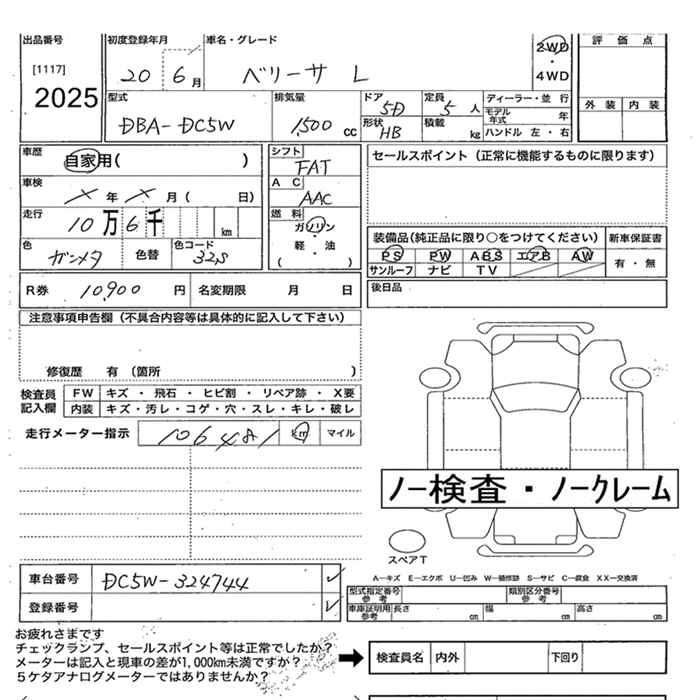 出品番号 初度登録年月 車名・グレード 2WD・4WD 評価点
[1117]
2025 20 6月 ベリーサ L
型式 排気量 ドア 5D 定員 5人 ディーラー・並行 外装 内装
DBA-DC5W 1,500cc 形状 HB 積載 kg モデル年式 年
ハンドル 左・右
車歴 自家用( ) シフト FAT セールスポイント(正常に機能するものに限ります)
車検 メ年メ月( 日) AC AAC
走行 10万6千 km 燃料 ガソリン・軽・油 ( )
色 ガンメタ 色替 色コード 32S
装備品(純正品に限り○をつけてください) 新車保証書
PS PW ABS エアB AW 有・無
サンルーフ ナビ TV
R券 10,900円 名変期限 月 日 後日品
注意事項申告欄(不具合内容等は具体的に記入して下さい)
修復歴 有(箇所 )
検査員記入欄 FW キズ・飛石・ヒビ割・リペア跡・X要
内装 キズ・汚レ・コゲ・穴・スレ・キレ・破レ
走行メーター指示 106481 km マイル
ノー検査・ノークレーム
スペアT
A―キズ E―エクボ U―凹み W―補修跡 S―サビ C―腐食 XX―交換済
車台番号 DC5W-324744
型式指定番号 参考 類別区分番号 参考
登録番号 車庫証明用 参考 長さ cm 幅 cm 高さ cm
お疲れさまです
チェックランプ、セールスポイント等は正常でしたか?
メーターは記入と現車の差が1,000km未満ですか?
5ケタアナログメーターではありませんか?
検査員名 内外 下回り